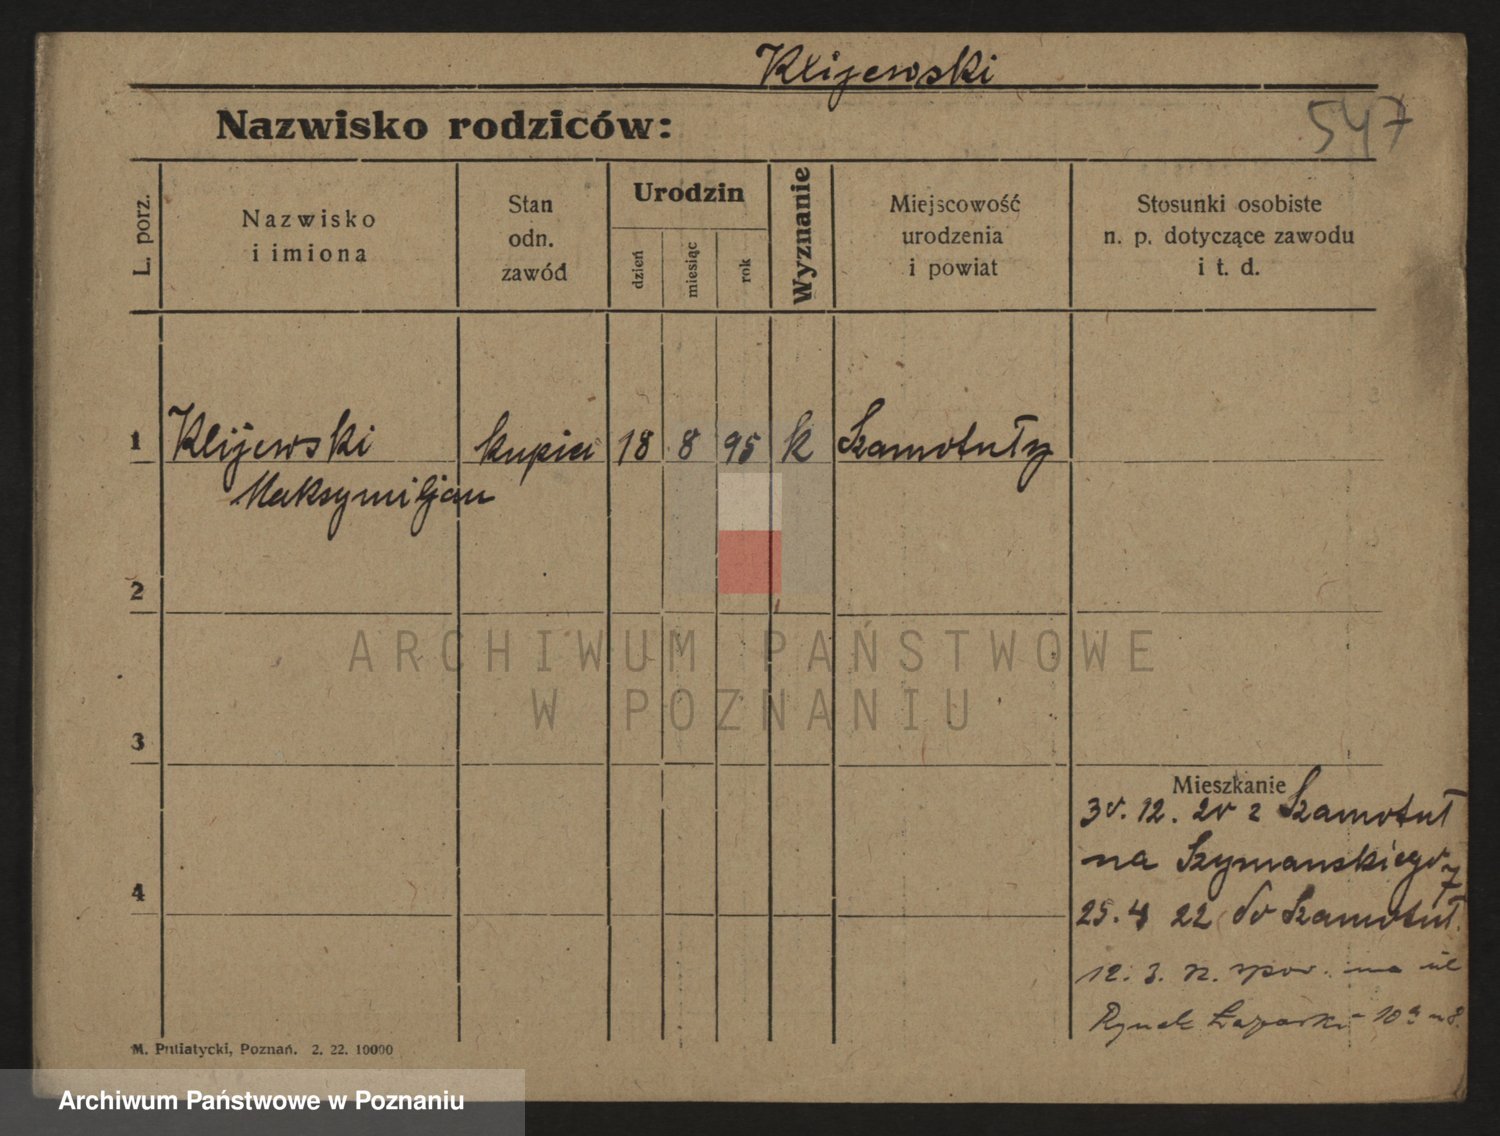 Klijewski
Nazwisko rodziców:
547
L. porz.
Nazwisko
i imiona
Stan
odn.
zawód
Urodzin
dzień
miesiąc
rok
Wyznanie
Miejscowość
urodzenia
i powiat
Stosunki osobiste
n. p. dotyczące zawodu
i t. d.
1 Klijewski kupiec 18 8 95 k Szamotuły
Maksymiljan
2
ARCHIWUM PAŃSTWOWE
W POZNANIU
3
Mieszkanie
30. 12. 20 z Szamotuł
na Szymanskiego 7
4
25. 4 22 do Szamotuł.
12. 3. na ul
Rynek Łazarski 10
M. Putiatycki, Poznań. 2. 22. 10000
Archiwum Państwowe w Poznaniu